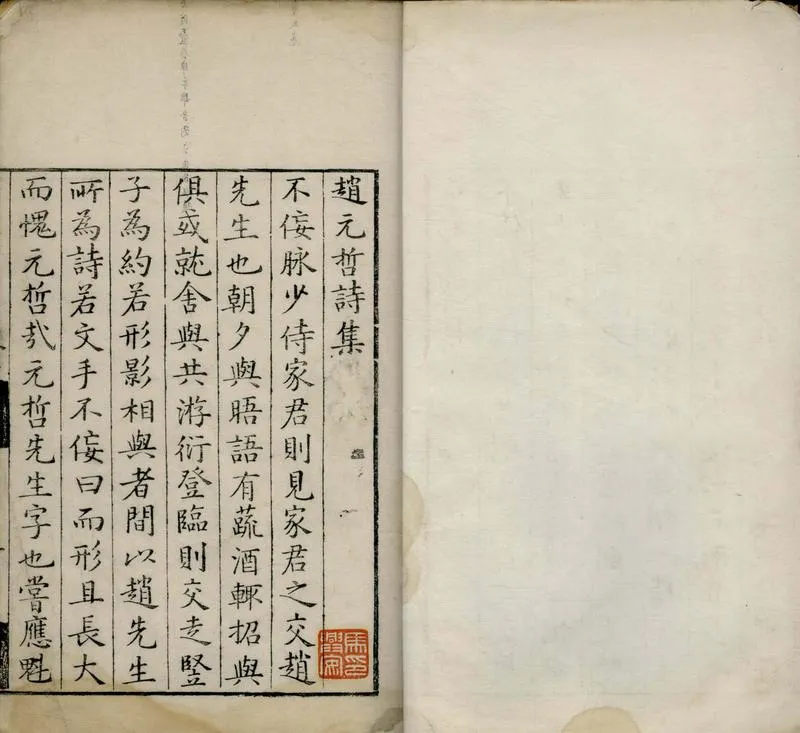 趙元哲詩集
不侫脉少侍家君則見家君之交趙
先生也朝夕與晤語有蔬酒輙招與
俱或就舍與共游衍登臨則交走竪
子為約若形影相與者間以趙先生
所為詩若文手不侫曰而形且長大
而愧元哲㢤元哲先生字也嘗應魁